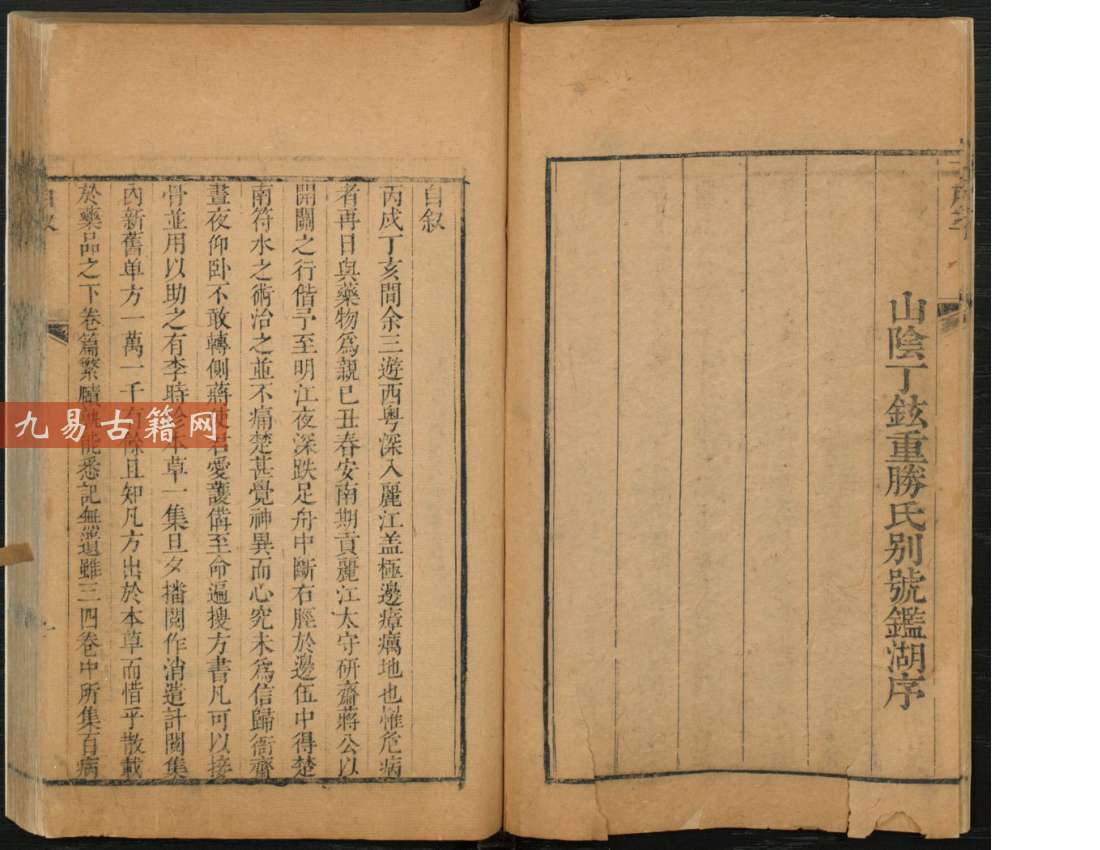 山陰丁鉉重勝氏别號鑑湖序
自叙
丙戌丁亥間余三遊西粤深入麗江盖極邊瘴癘地也罹危病
者再日與藥物爲親已丑春安南期貢麗江太守研齋蔣公以
開關之行偕予至明江夜深跌足舟中斷右脛於邊伍中得楚
南符水之術治之並不痛楚甚覺神異而心究未爲信歸衙齋
晝夜仰卧不敢轉側蔣使君愛護備至命遍搜方書凡可以接
骨並用以助之有李時珍本草一集旦夕播閱作消遣計閱集
內新舊单方一萬一千有餘且知凡方出於本草而惜乎散載
於藥品之下卷篇繁牘能悉記無遺雖三四卷中所集百病
自叙
一
九易古籍网